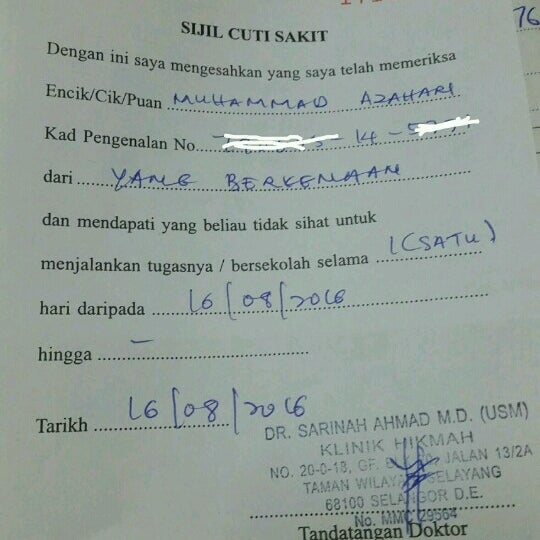 SIJIL CUTI SAKIT
76
Dengan ini saya mengesahkan yang saya telah memeriksa
Encik/Cik/Puan MUHAMMAD AZAHARI
Kad Pengenalan No. 14 -
dari YANG BERKENAAN
dan mendapati yang beliau tidak sihat untuk
menjalankan tugasnya / bersekolah selama 1 (SATU)
hari daripada 16/08/2016
hingga –
Tarikh 16/08/2016
DR. SARINAH AHMAD M.D. (USM)
KLINIK HIKMAH
NO. 20-0-18, GF. JALAN 13/2A
TAMAN WILAYAH SELAYANG
68100 SELANGOR D.E.
No. MMC 29564
Tandatangan Doktor